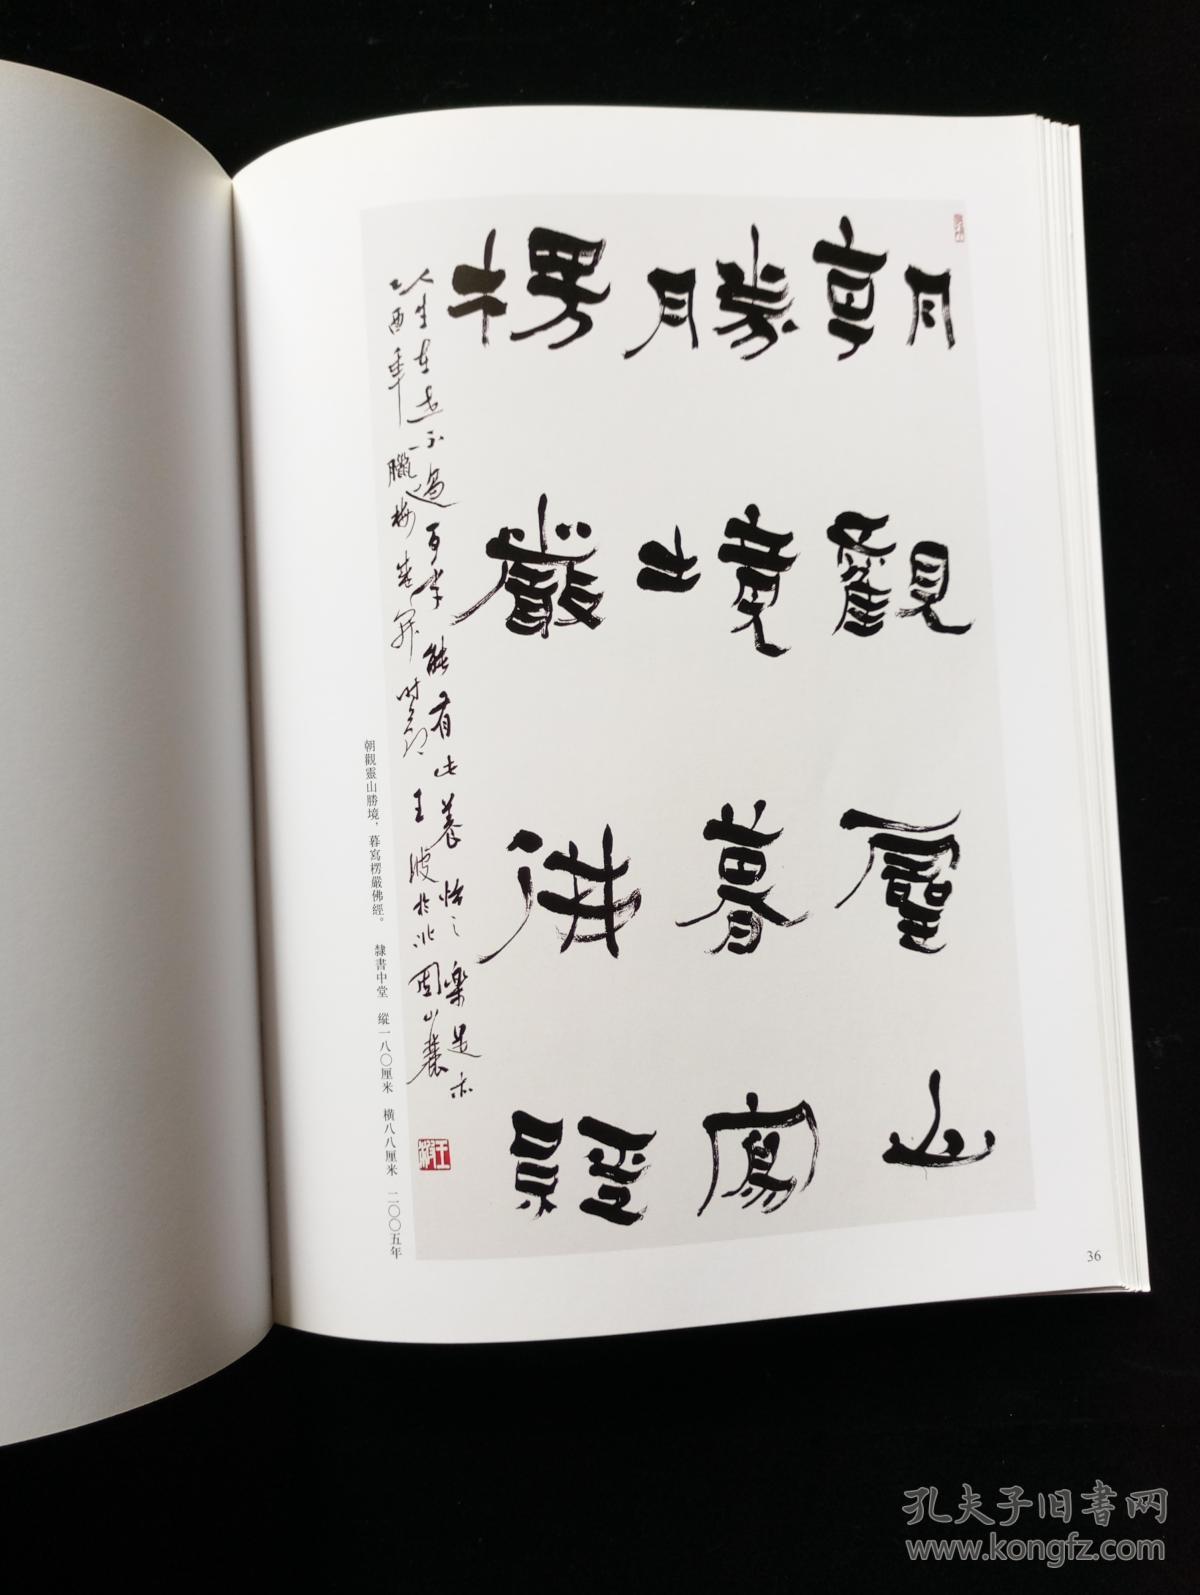 朝觀靈山
勝境暮寫
楞嚴佛經
人生在世不過百年能有此養怡之樂足亦
乙酉年臘梅花開時節王波於北固山麓
朝觀靈山勝境，暮寫楞嚴佛經。 隸書中堂 縱一八〇厘米 橫八八厘米 二〇〇五年
36
孔夫子旧书网
www.kongfz.com